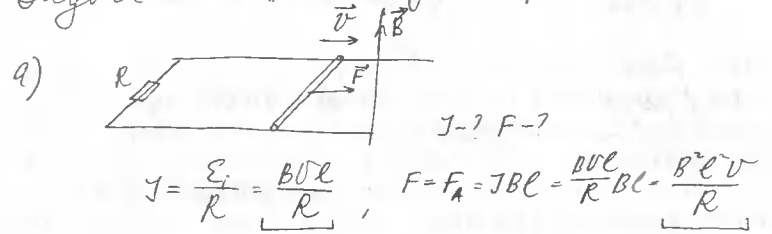 v⃗ B⃗
а) R F⃗
J-? F-?
J = εᵢ/R = Bvl/R , F = F_A = JBl = Bvl/R Bl = B²l²v/R